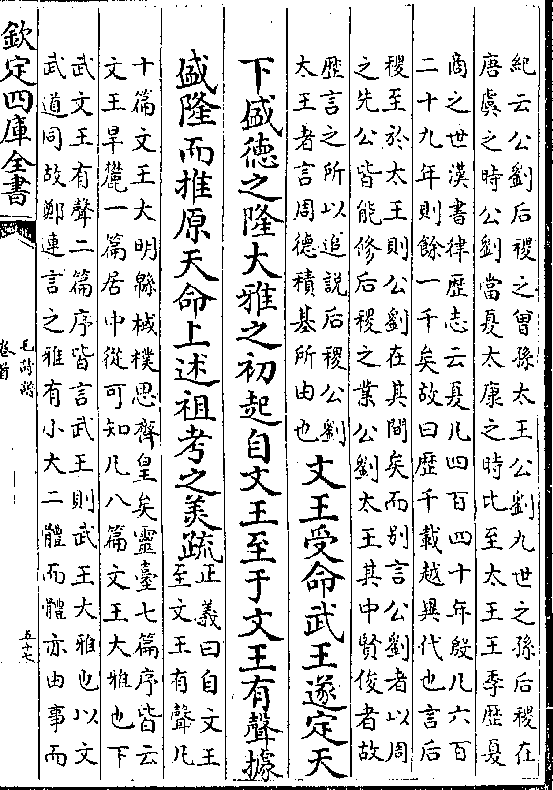 紀云公劉后稷之曽孫太王公劉九世之孫后稷在
唐虞之時公劉當夏太康之時比至太王王季歴夏
商之世漢書律歴志云夏凡四百四十年殷凡六百
二十九年則餘一千矣故曰歴千載越異代也言后
稷至於太王則公劉在其間矣而别言公劉者以周
之先公皆能修后稷之業公劉太王其中賢俊者故
歴言之所以追説后稷公劉
太王者言周德積基所由也
文王受命武王遂定天
下盛德之隆大雅之初起自文王至于文王有聲據
盛隆而推原天命上述祖考之美疏
正義曰自文王
至文王有聲凡
十篇文王大明緜棫樸思齊皇矣靈臺七篇序皆云
文王旱麓一篇居中從可知凡八篇文王大雅也下
武文王有聲二篇序皆言武王則武王大雅也以文
武道同故鄭連言之雅有小大二體而體亦由事而
欽定四庫全書
毛詩譜
卷首
五十七